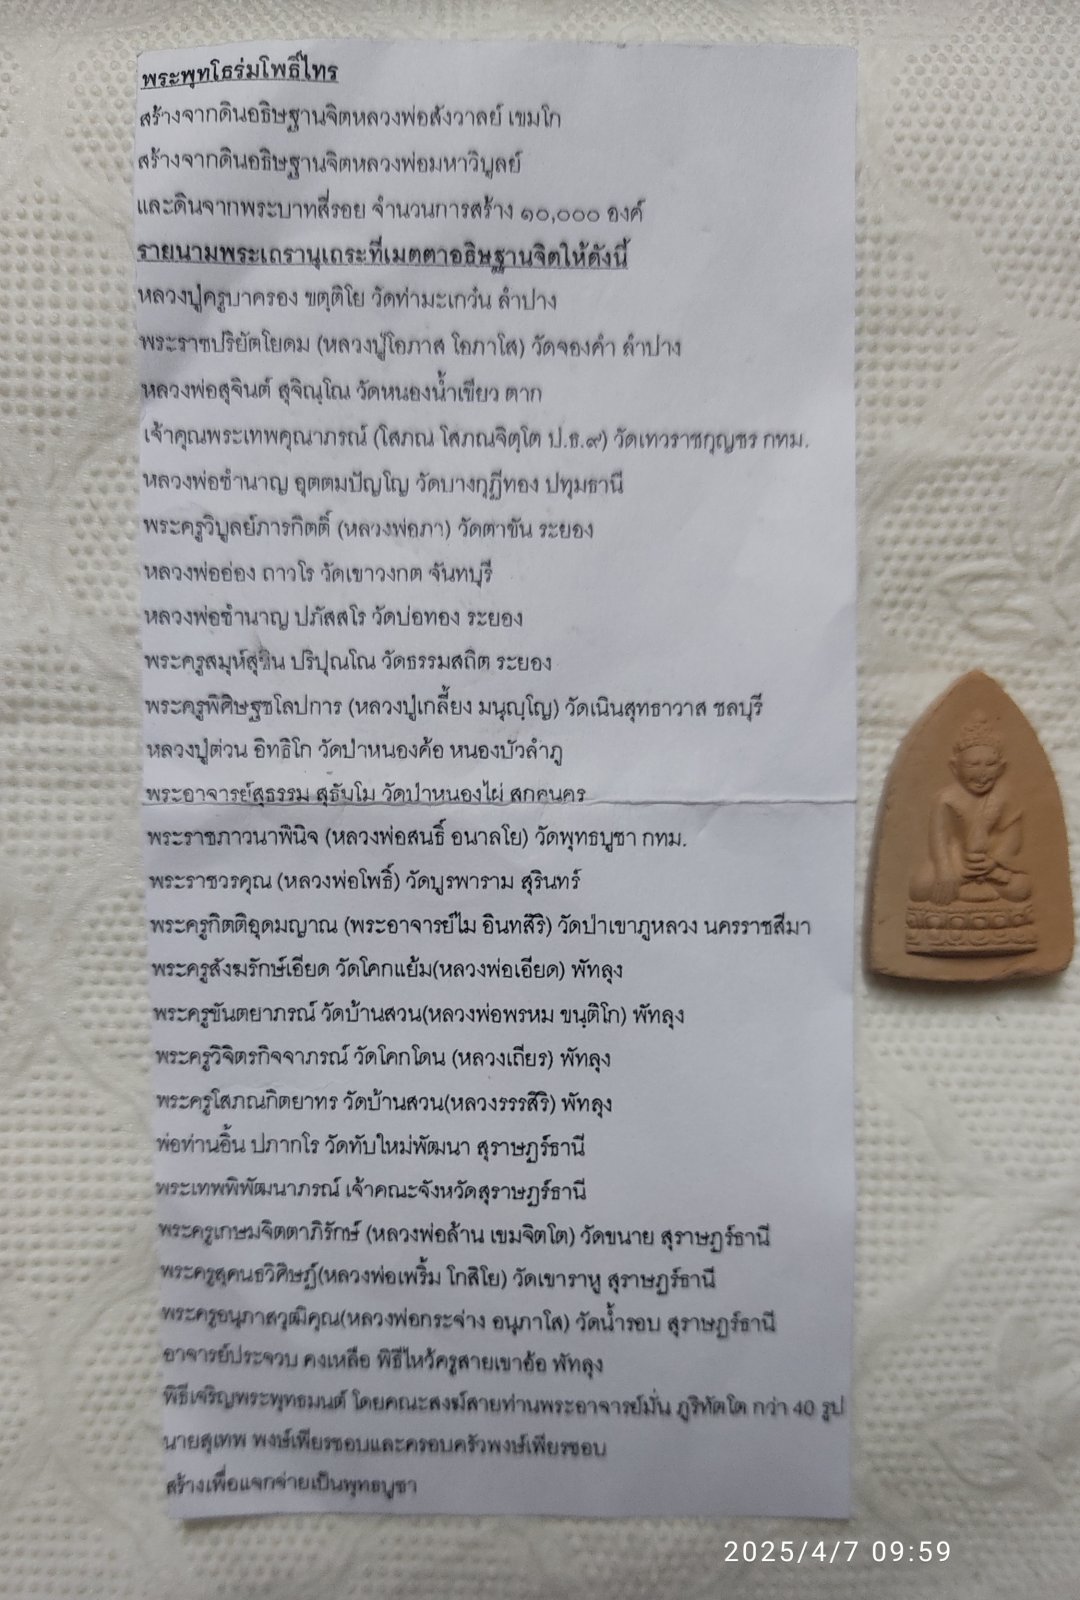 พระพุทโธร่มโพธิ์ไทร
สร้างจากดินอธิษฐานจิตหลวงพ่อสังวาลย์ เขมโก
สร้างจากดินอธิษฐานจิตหลวงพ่อมหาวิบูลย์
และดินจากพระบาทสี่รอย จำนวนการสร้าง ๑๐,๐๐๐ องค์
รายนามพระเถรานุเถระที่เมตตาอธิษฐานจิตให้ดังนี้
หลวงปู่ครูบาครอง ขตฺติโย วัดท่ามะเกว๋น ลำปาง
พระราชปริยัตโยดม (หลวงปู่โอภาส โอภาโส) วัดจองคำ ลำปาง
หลวงพ่อสุจินต์ สุจิณฺโณ วัดหนองน้ำเขียว ตาก
เจ้าคุณพระเทพคุณาภรณ์ (โสภณ โสภณจิตฺโต ป.ธ.๙) วัดเทวราชกุญชร กทม.
หลวงพ่อชำนาญ อุตตมปัญโญ วัดบางกุฎีทอง ปทุมธานี
พระครูวิบูลย์ภารกิตติ์ (หลวงพ่อภา) วัดตาขัน ระยอง
หลวงพ่ออ่อง ถาวโร วัดเขาวงกต จันทบุรี
หลวงพ่อชำนาญ ปภัสสโร วัดบ่อทอง ระยอง
พระครูสมุห์สุชิน ปริปุณโณ วัดธรรมสถิต ระยอง
พระครูพิศิษฐชโลปการ (หลวงปู่เกลี้ยง มนุญฺโญ) วัดเนินสุทธาวาส ชลบุรี
หลวงปู่ต่วน อิทธิโก วัดป่าหนองค้อ หนองบัวลำภู
พระอาจารย์สุธรรม สุธัมโม วัดป่าหนองไผ่ สกลนคร
พระราชภาวนาพินิจ (หลวงพ่อสนธิ์ อนาลโย) วัดพุทธบูชา กทม.
พระราชวรคุณ (หลวงพ่อโพธิ์) วัดบูรพาราม สุรินทร์
พระครูกิตติอุดมญาณ (พระอาจารย์ไม อินทสิริ) วัดป่าเขาภูหลวง นครราชสีมา
พระครูสังฆรักษ์เอียด วัดโคกแย้ม(หลวงพ่อเอียด) พัทลุง
พระครูขันตยาภรณ์ วัดบ้านสวน(หลวงพ่อพรหม ขนฺติโก) พัทลุง
พระครูวิจิตรกิจจาภรณ์ วัดโคกโดน (หลวงเถียร) พัทลุง
พระครูโสภณกิตยาทร วัดบ้านสวน(หลวงรรรสิริ) พัทลุง
พ่อท่านอิ้น ปภากโร วัดทับใหม่พัฒนา สุราษฎร์ธานี
พระเทพพิพัฒนาภรณ์ เจ้าคณะจังหวัดสุราษฎร์ธานี
พระครูเกษมจิตตาภิรักษ์ (หลวงพ่อล้าน เขมจิตโต) วัดขนาย สุราษฎร์ธานี
พระครูสุคนธวิศิษฏ์(หลวงพ่อเพริ้ม โกสิโย) วัดเขาราหู สุราษฎร์ธานี
พระครูอนุภาสวุฒิคุณ(หลวงพ่อกระจ่าง อนุภาโส) วัดน้ำรอบ สุราษฎร์ธานี
อาจารย์ประจวบ คงเหลือ พิธีไหว้ครูสายเขาอ้อ พัทลุง
พิธีเจริญพระพุทธมนต์ โดยคณะสงฆ์สายท่านพระอาจารย์มั่น ภูริทัตโต กว่า 40 รูป
นายสุเทพ พงษ์เพียรชอบและครอบครัวพงษ์เพียรชอบ
สร้างเพื่อแจกจ่ายเป็นพุทธบูชา
2025/4/7 09:59